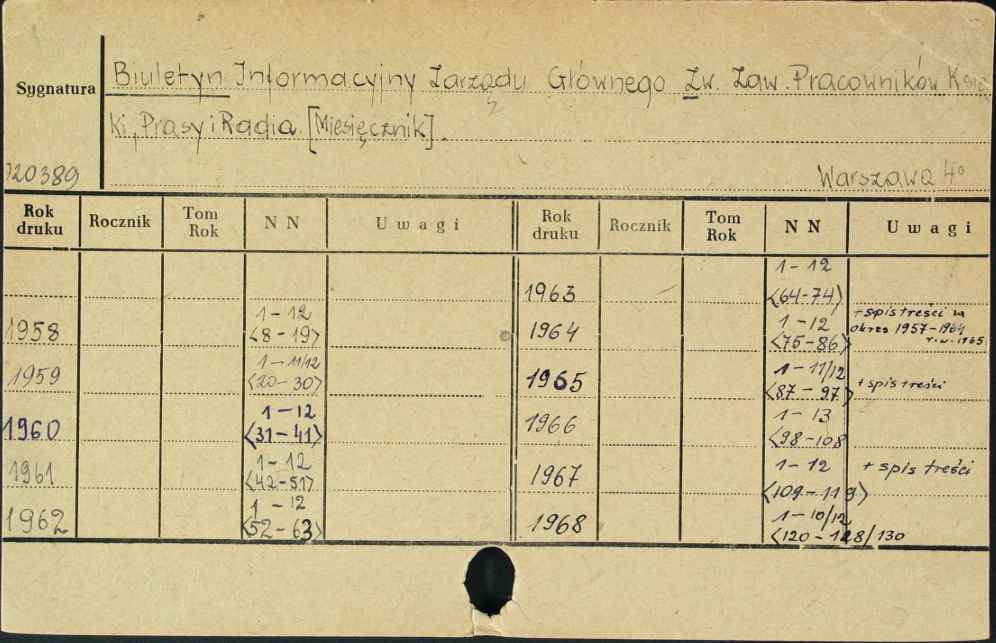 Sygnatura
Biuletyn Informacyjny Zarządu Głównego Zw. Zaw. Pracowników Książ
ki, Prasy i Radia. [Miesięcznik].
020389
Warszawa 4°
Rok druku Rocznik Tom Rok NN Uwagi Rok druku Rocznik Tom Rok NN Uwagi
1958 1-12 <8-19>
1959 1-11/12 <20-30>
1960 1-12 <31-41>
1961 1-12 <42-51>
1962 1-12 <52-63>
1963 1-12 <64-74>
1964 1-12 <75-86> + spis treści za okres 1957-1964 r. w. 1965
1965 1-11/12 <87-97> + spis treści
1966 1-13 <98-108
1967 1-12 <109-119> + spis treści
1968 1-10/12 <120-128/130